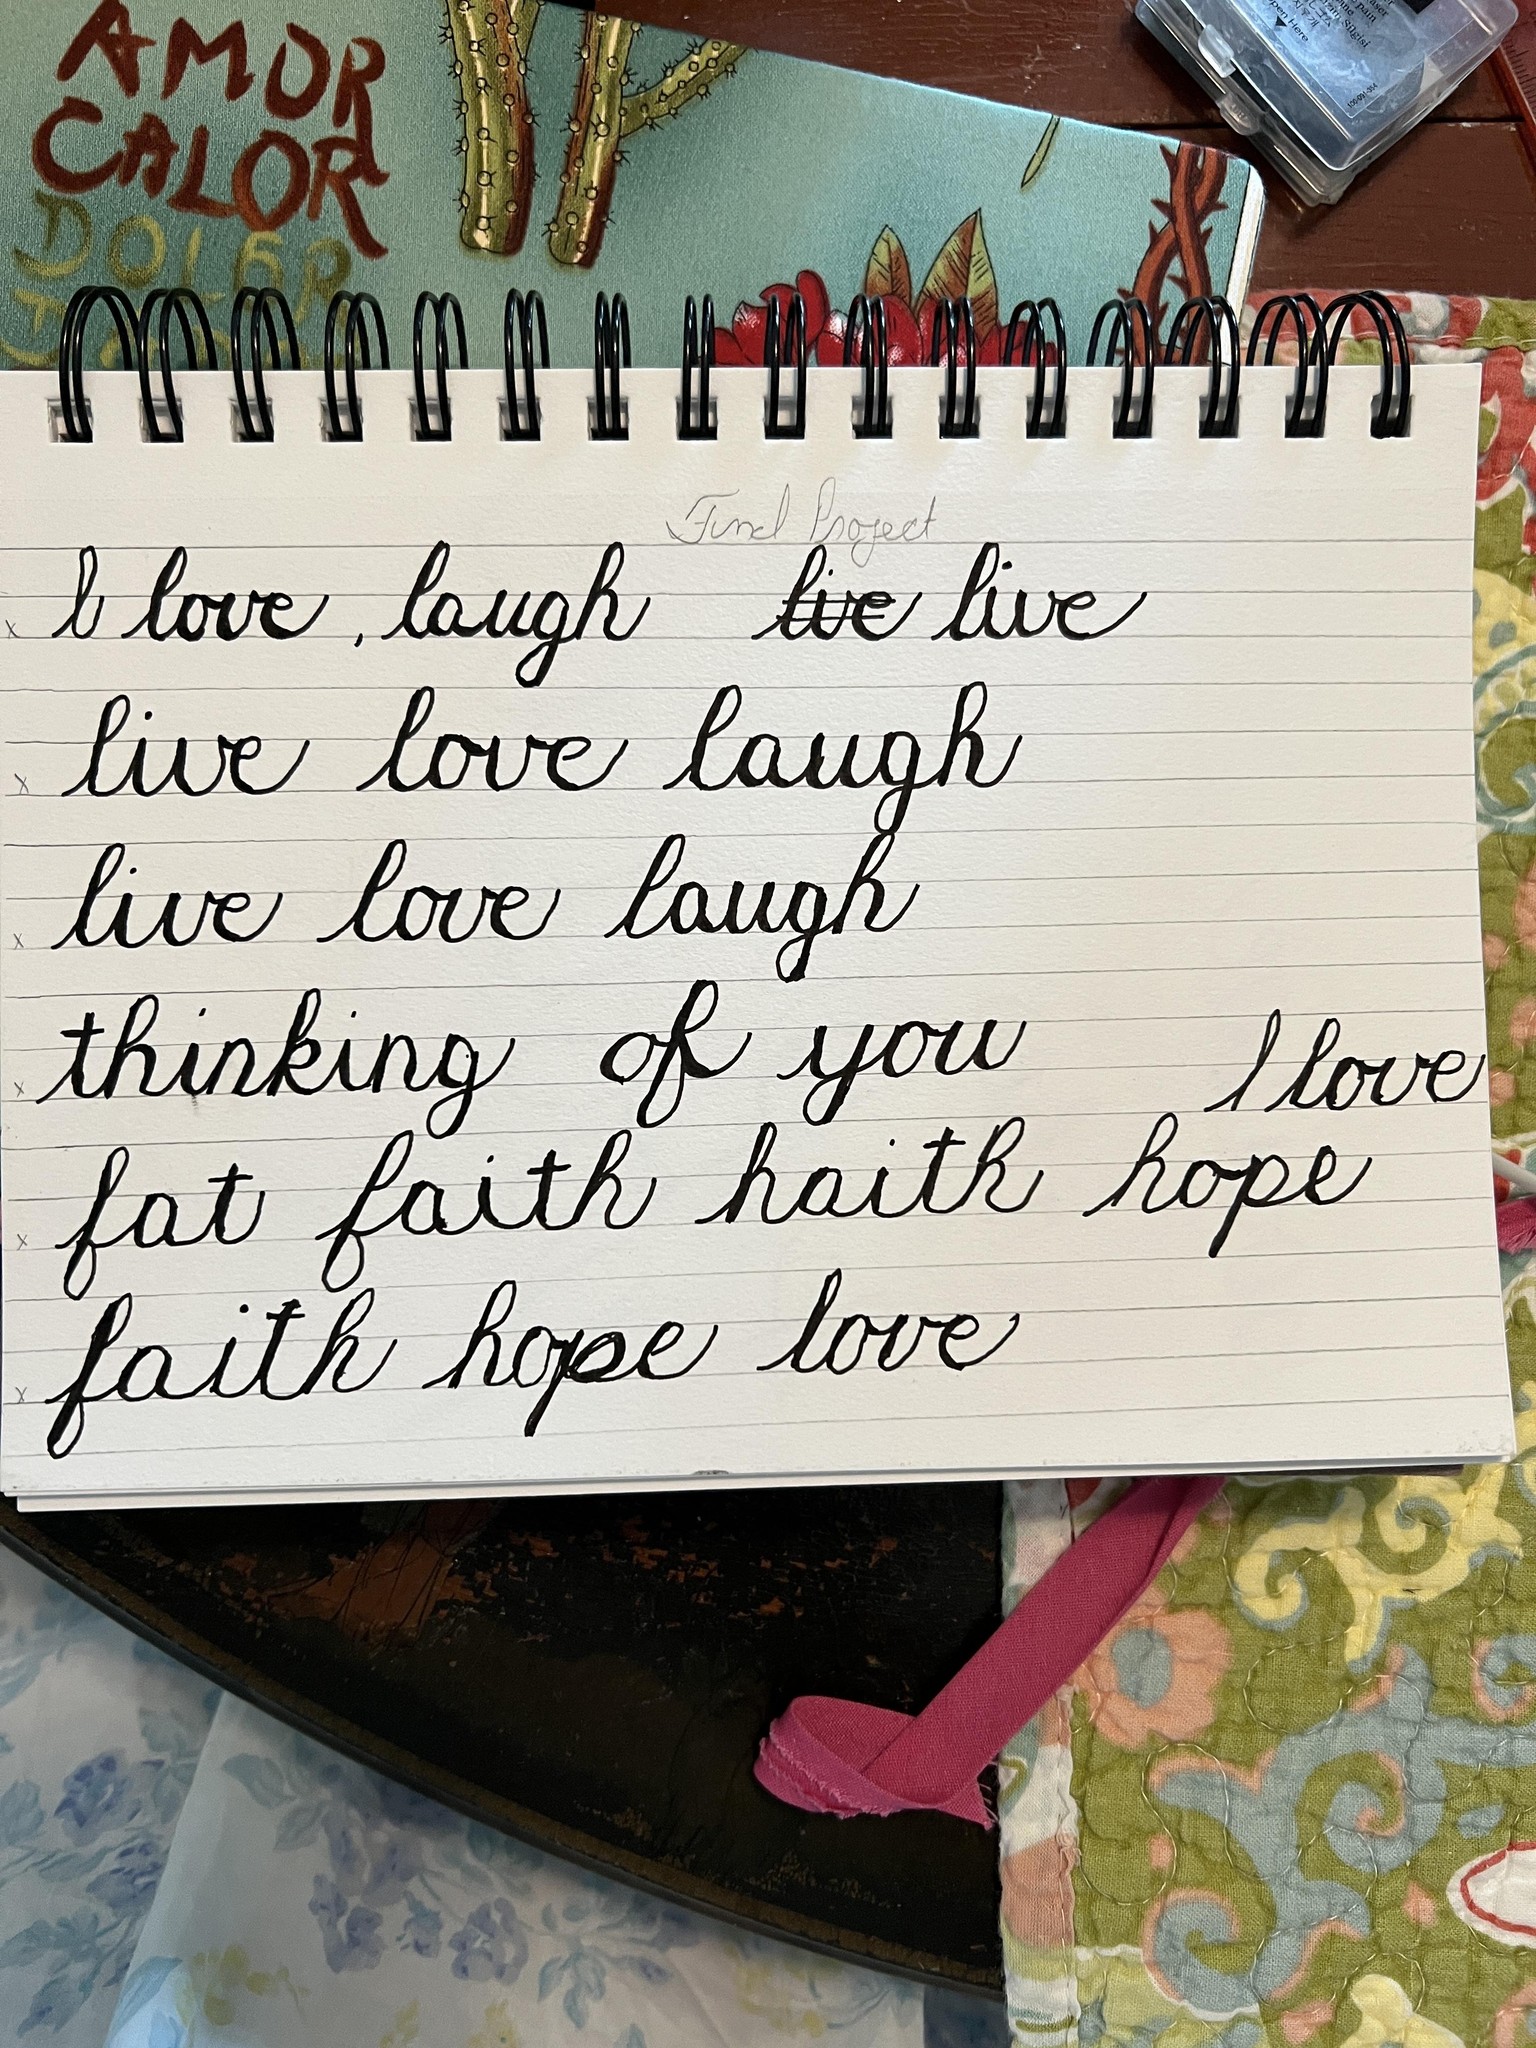 AMOR
CALOR
DOLOR
Final Project
l love, laugh live live
x live love laugh
x live love laugh
x thinking of you l love
x fat faith haith hope
x faith hope love